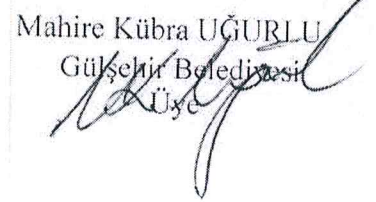 Mahire Kübra UĞURLU
Gülşehir Belediyesi
Üye